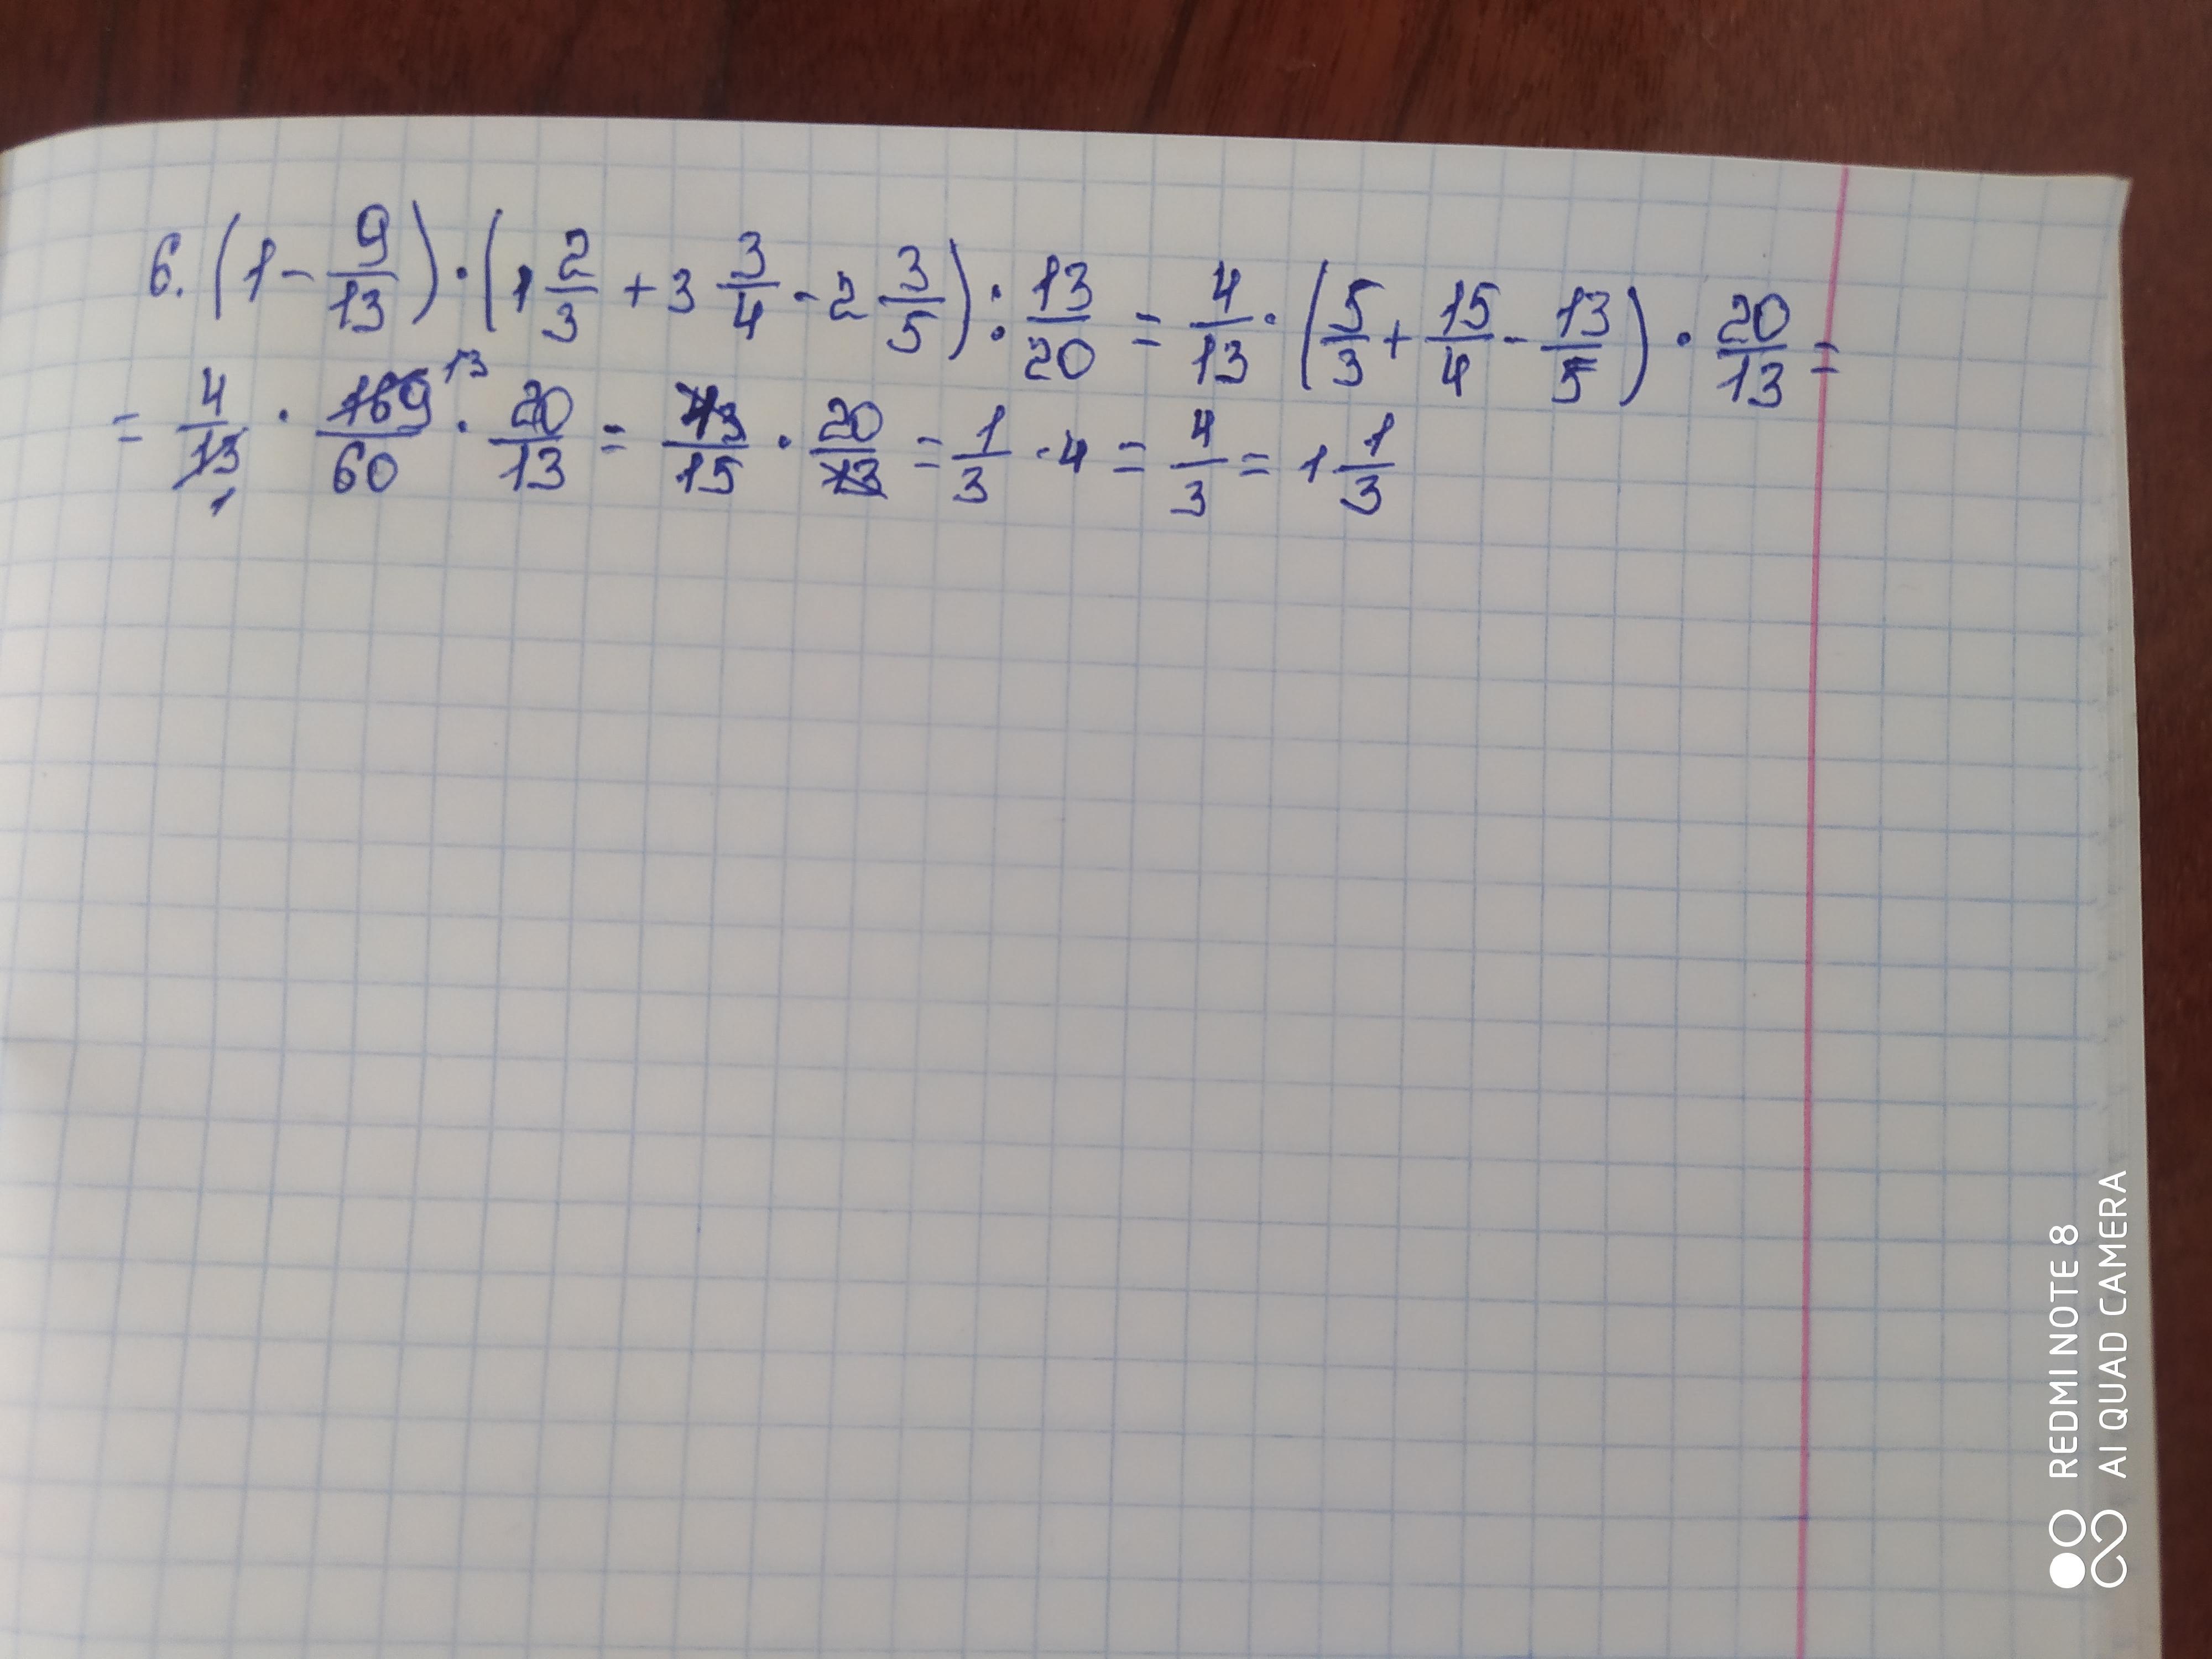 6. (1 - 9/13) · (1 2/3 + 3 3/4 - 2 3/5) : 13/20 = 4/13 · (5/3 + 15/4 - 13/5) · 20/13 =
= 4/13 1 · 169 13/60 · 20/13 = 13/15 · 20/13 = 1/3 · 4 = 4/3 = 1 1/3
REDMI NOTE 8
AI QUAD CAMERA